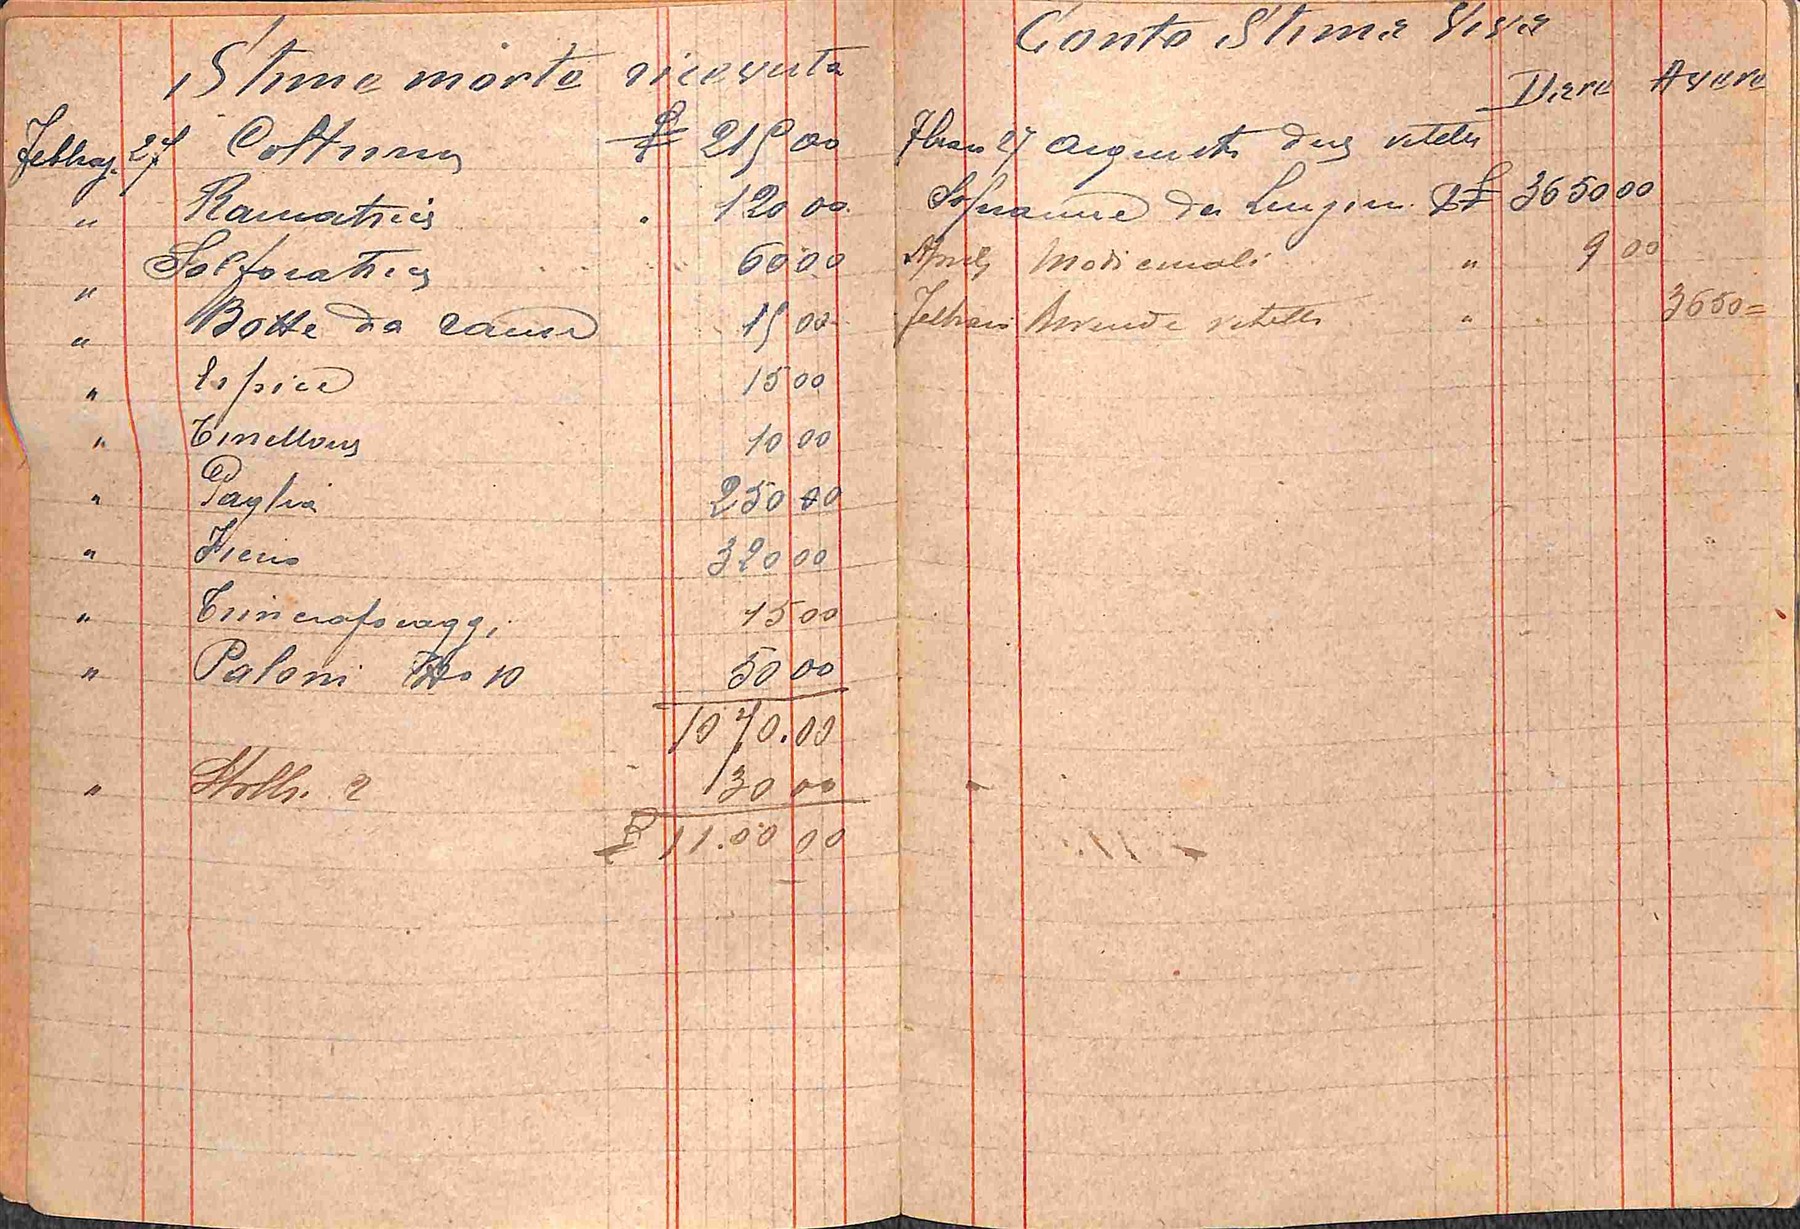 Stime morte ricevuta
Febbraj. 27 Coltrina £ 215 00
" Ramatrici . 120 00
" Solforatrici 60 00
" Botte da rame 15 00
" 15 00
" Tinellone 10 00
" Paglia 250 00
" Fieno 320 00
" Trinciaforaggi 15 00
" Paloni No 10 50 00
1070.00
" 2 30 00
£ 11.00 00
Conto Stima Viva
Dare Avere
27 Acquisto due vitelli
da £ 3650 00
Aprile Medicinali " 9 00
Febbraio vitelli " 3650=